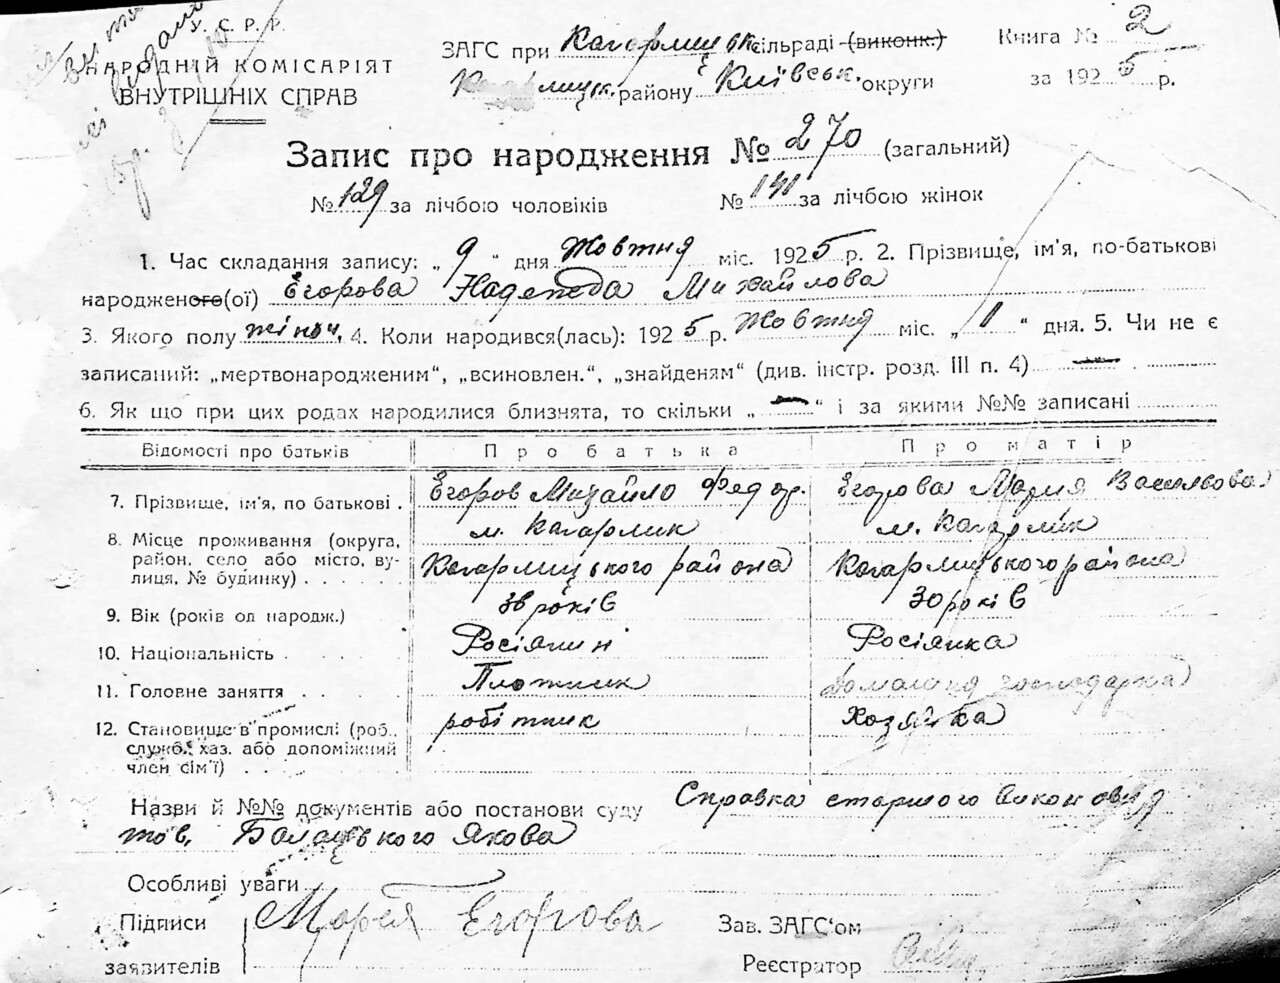 У. С. Р. Р.
НАРОДНІЙ КОМІСАРІЯТ
ВНУТРІШНІХ СПРАВ
ЗАГС при Кагарлицьк. сільраді (виконк.) Книга № 2
Кагарлицьк. району Київськ. округи за 1925 р.
Запис про народження № 270 (загальний)
№ 129 за лічбою чоловіків № 141 за лічбою жінок
1. Час складання запису: „ 9 “ дня Жовтня міс. 1925 р. 2. Прізвище, ім'я, по-батькові
народженого(ої) Єгорова Надежда Михайлова
3. Якого полу жіноч. 4. Коли народився(лась): 1925 р. Жовтня міс. „ 1 “ дня. 5. Чи не є
записаний: „мертвонародженим“, „всиновлен.“, „знайденям“ (див. інстр. розд. III п. 4) —
6. Як що при цих родах народилися близнята, то скільки „ — “ і за якими №№ записані
Відомості про батьків Про батька Про матір
7. Прізвище, ім'я, по батькові . Єгоров Михайло Федор. Єгорова Мария Васильова
8. Місце проживання (округа, район, село або місто, вулиця, № будинку) . . . . . м. Кагарлик Кагарлицького района м. Кагарлик Кагарлицького района
9. Вік (років од народж.) 38 років 30 років
10. Національність . . . . Росіянин Росіянка
11. Головне заняття . . . . Плотник Домашня господарка
12. Становище в промислі (роб., службі. хаз. або допоміжний член сім'ї) . . . . робітник Хозяйка
Назви й №№ документів або постанови суду Справка старшого виконовця
тов. Балацького Якова
Особливі уваги
Підписи Мария Егорова Зав. ЗАГС'ом
заявителів Реєстратор